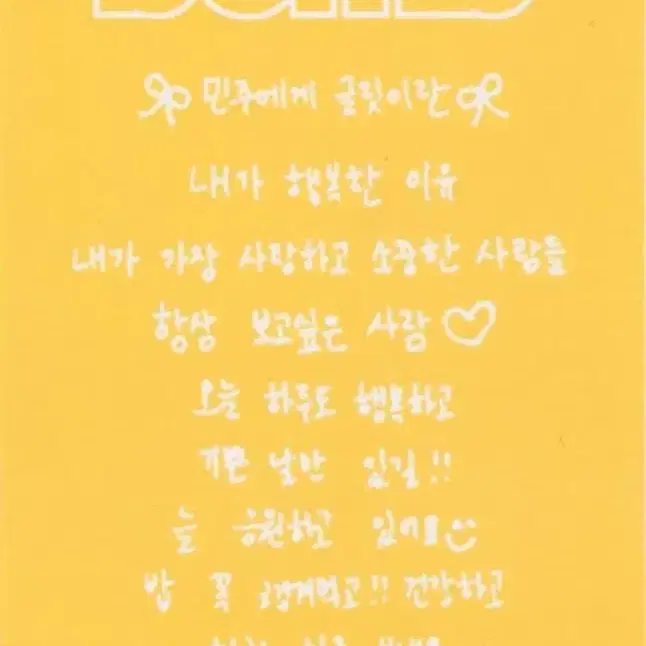 민주에게 글릿이란
내가 행복한 이유
내가 가장 사랑하고 소중한 사람들
항상 보고싶은 사람
오늘 하루도 행복하고
기쁜 날만 있길!!
늘 응원하고 있어요
밥 꼭 챙겨먹고!! 건강하고